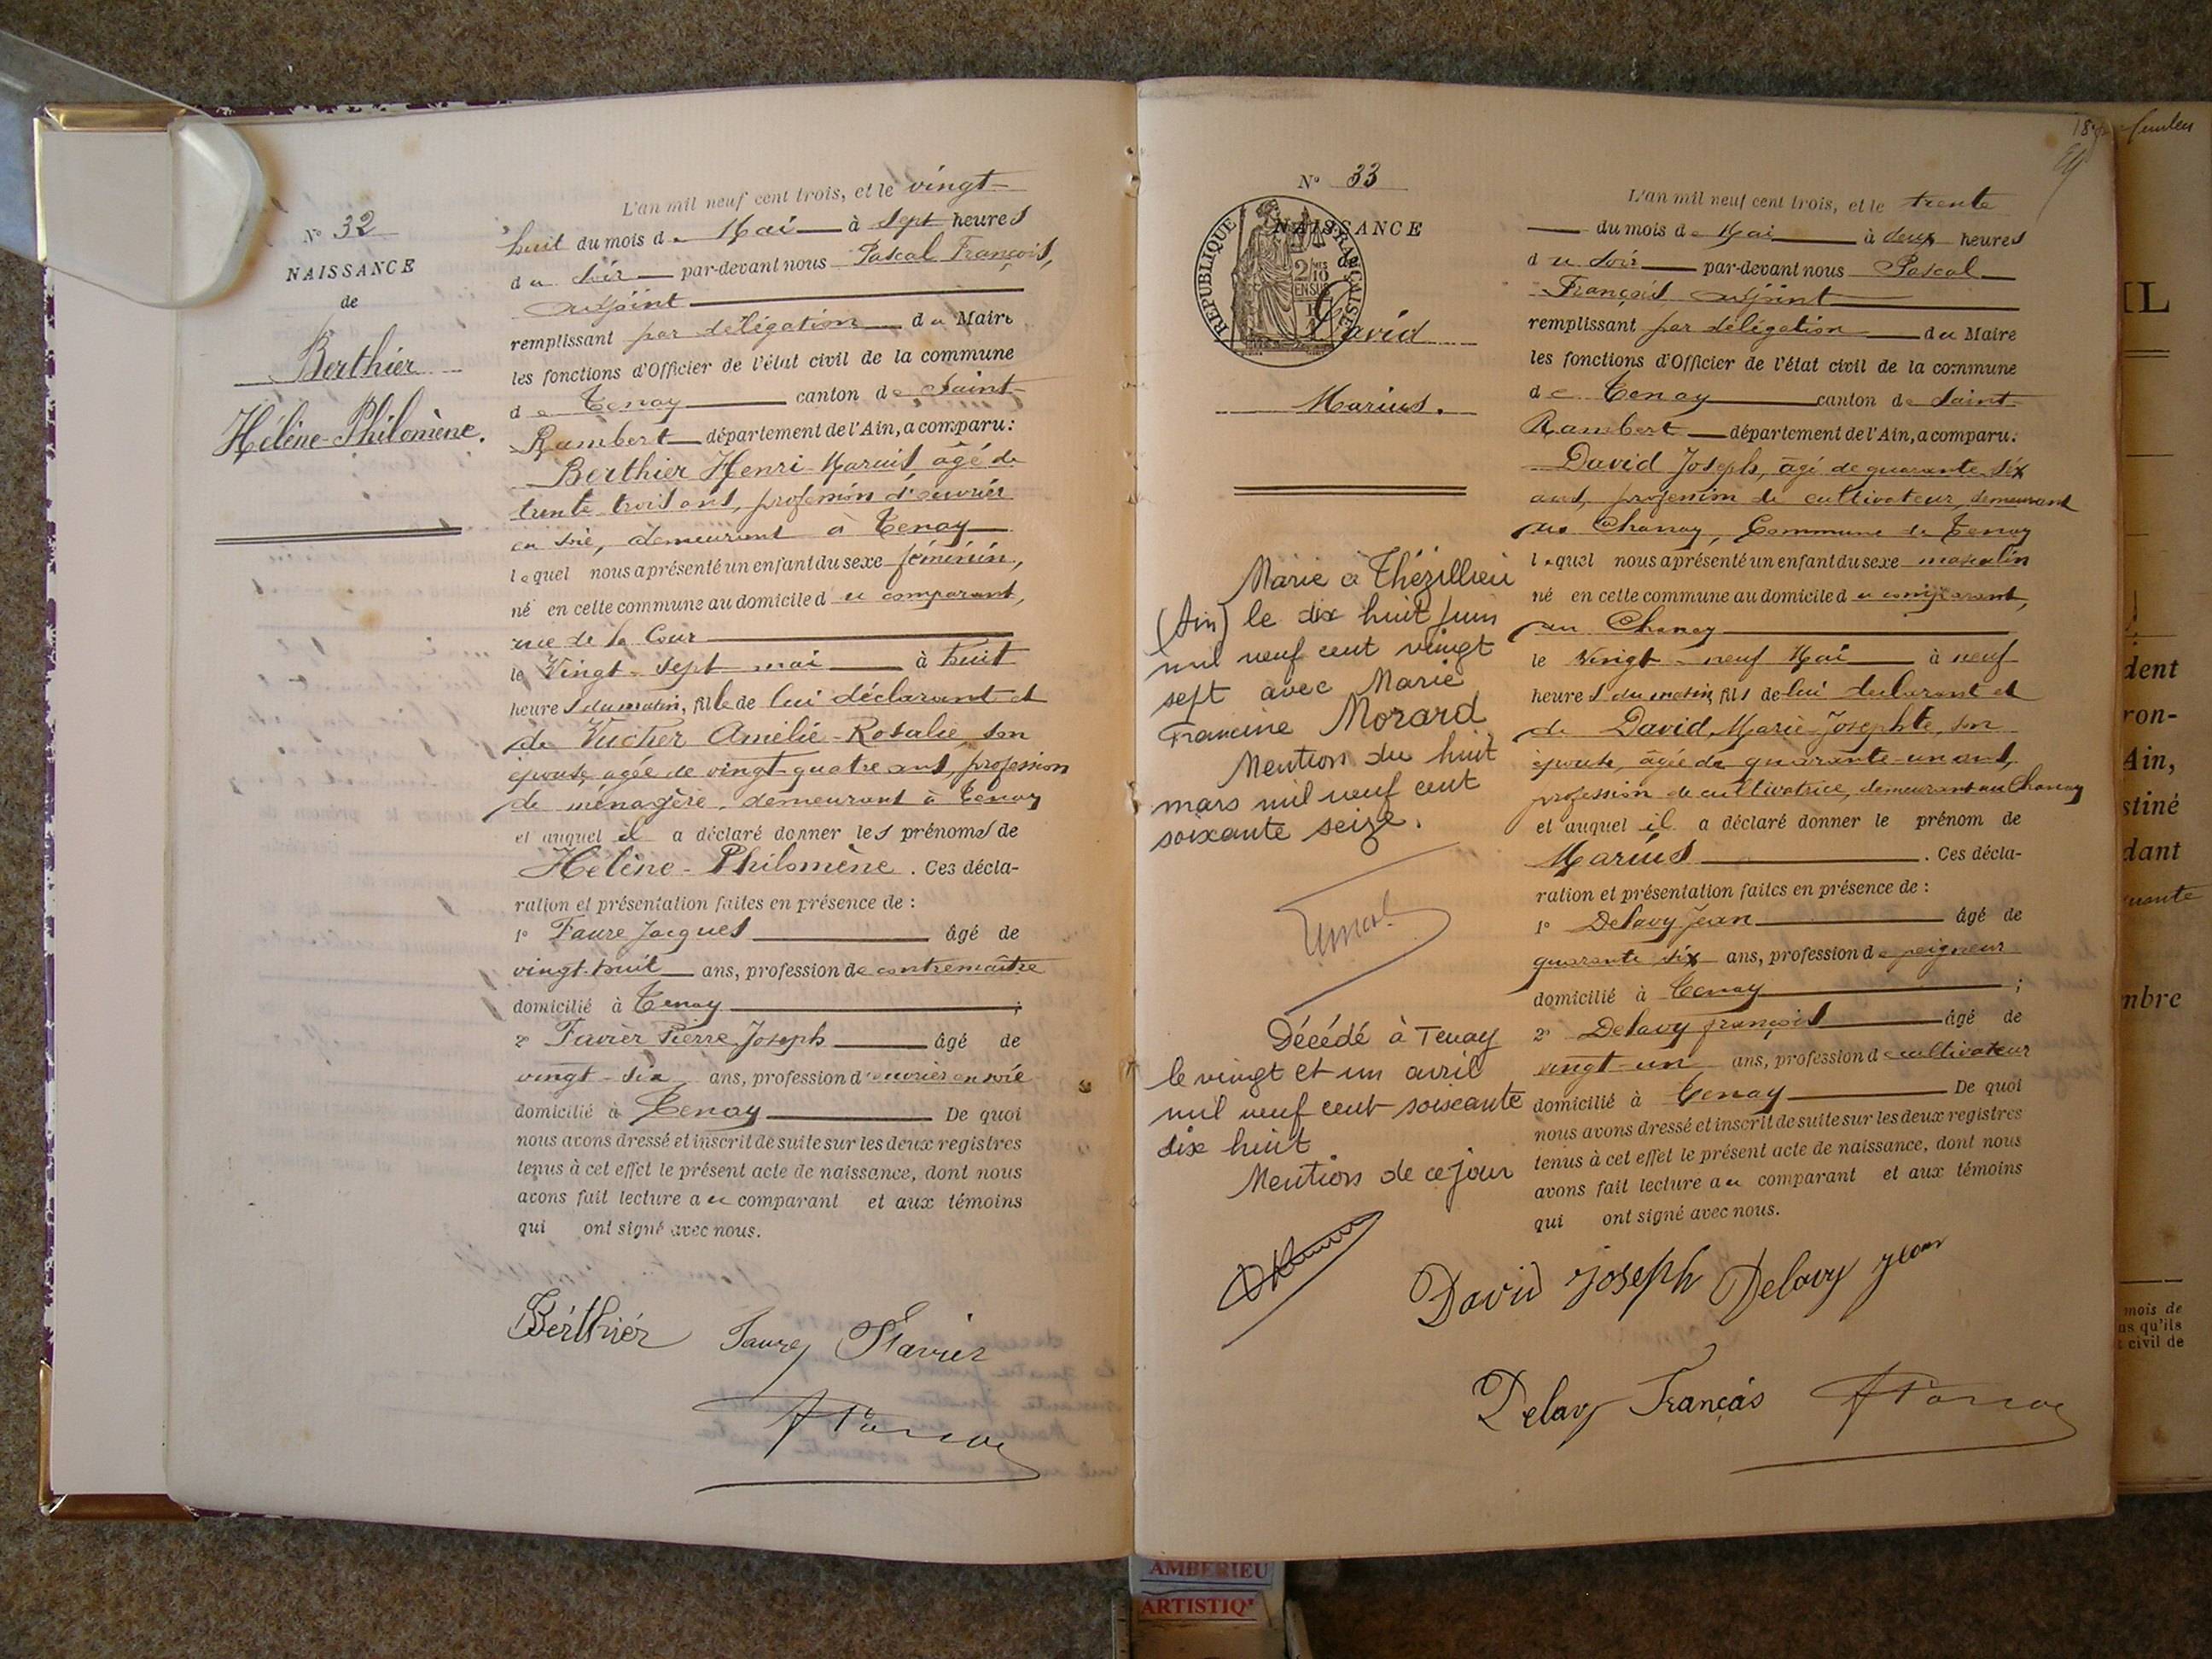 N° 32
NAISSANCE
de
Berthier
Hélène-Philomène.
L'an mil neuf cent trois, et le vingt-
huit du mois de Mai à sept heures
du soir par-devant nous Pascal François,
adjoint
remplissant par délégation du Maire
les fonctions d'Officier de l'état civil de la commune
de Tenay canton de Saint-
Rambert département de l'Ain, a comparu:
Berthier Henri Marius âgé de
trente trois ans, profession d'ouvrier
en soie, demeurant à Tenay
lequel nous a présenté un enfant du sexe féminin,
né en cette commune au domicile du comparant,
rue de la Cour
le Vingt-sept mai à huit
heures du matin, fille de lui déclarant et
de Vucher Amélie-Rosalie, son
épouse, agée de vingt-quatre ans, profession
de ménagère, demeurant à Tenay
et auquel il a déclaré donner les prénoms de
Hélène-Philomène. Ces décla-
ration et présentation faites en présence de :
1° Faure Jacques âgé de
vingt-huit ans, profession de contremaître
domicilié à Tenay ;
2° Favier Pierre Joseph âgé de
vingt-six ans, profession d'ouvrier en soie
domicilié à Tenay De quoi
nous avons dressé et inscrit de suite sur les deux registres
tenus à cet effet le présent acte de naissance, dont nous
avons fait lecture au comparant et aux témoins
qui ont signé avec nous.
Bérthiér Faure Favier
N° 33
NAISSANCE
de
RÉPUBLIQUE FRANÇAISE
2/10
EN SUS
David
Marius.
Marié à Thézillieu
(Ain) le dix huit juin
mil neuf cent vingt
sept avec Marie
Francine Morard
Mention du huit
mars mil neuf cent
soixante seize.
Décédé à Tenay
le vingt et un avril
mil neuf cent soixante
dix huit
Mention de ce jour
L'an mil neuf cent trois, et le trente
du mois de Mai à deux heures
du soir par-devant nous Pascal
François adjoint
remplissant par délégation du Maire
les fonctions d'Officier de l'état civil de la commune
de Tenay canton de Saint-
Rambert département de l'Ain, a comparu:
David Joseph, âgé de quarante six
ans, profession de cultivateur, demeurant
au Chanay, Commune de Tenay
lequel nous a présenté un enfant du sexe masculin
né en cette commune au domicile du comparant,
au Chanay
le Vingt-neuf Mai à neuf
heures du matin, fils de lui déclarant et
de David Marie Josephte, son
épouse, âgée de quarante-un ans,
profession de cultivatrice, demeurant au Chanay
et auquel il a déclaré donner le prénom de
Marius. Ces décla-
ration et présentation faites en présence de :
1° Delavy Jean âgé de
quarante six ans, profession de peigneur
domicilié à Tenay ;
2° Delavy françois âgé de
vingt-un ans, profession de cultivateur
domicilié à Tenay De quoi
nous avons dressé et inscrit de suite sur les deux registres
tenus à cet effet le présent acte de naissance, dont nous
avons fait lecture au comparant et aux témoins
qui ont signé avec nous.
David Joseph Delavy jean
Delavy Françás
IL
dent
ron-
Ain,
stiné
dant
nbre
mois de
ns qu'ils
civil de
AMBERIEU
ARTISTIQ